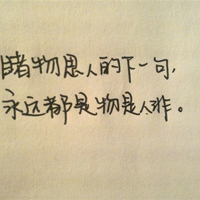 睹物思人的下一句，
永远都是物是人非。